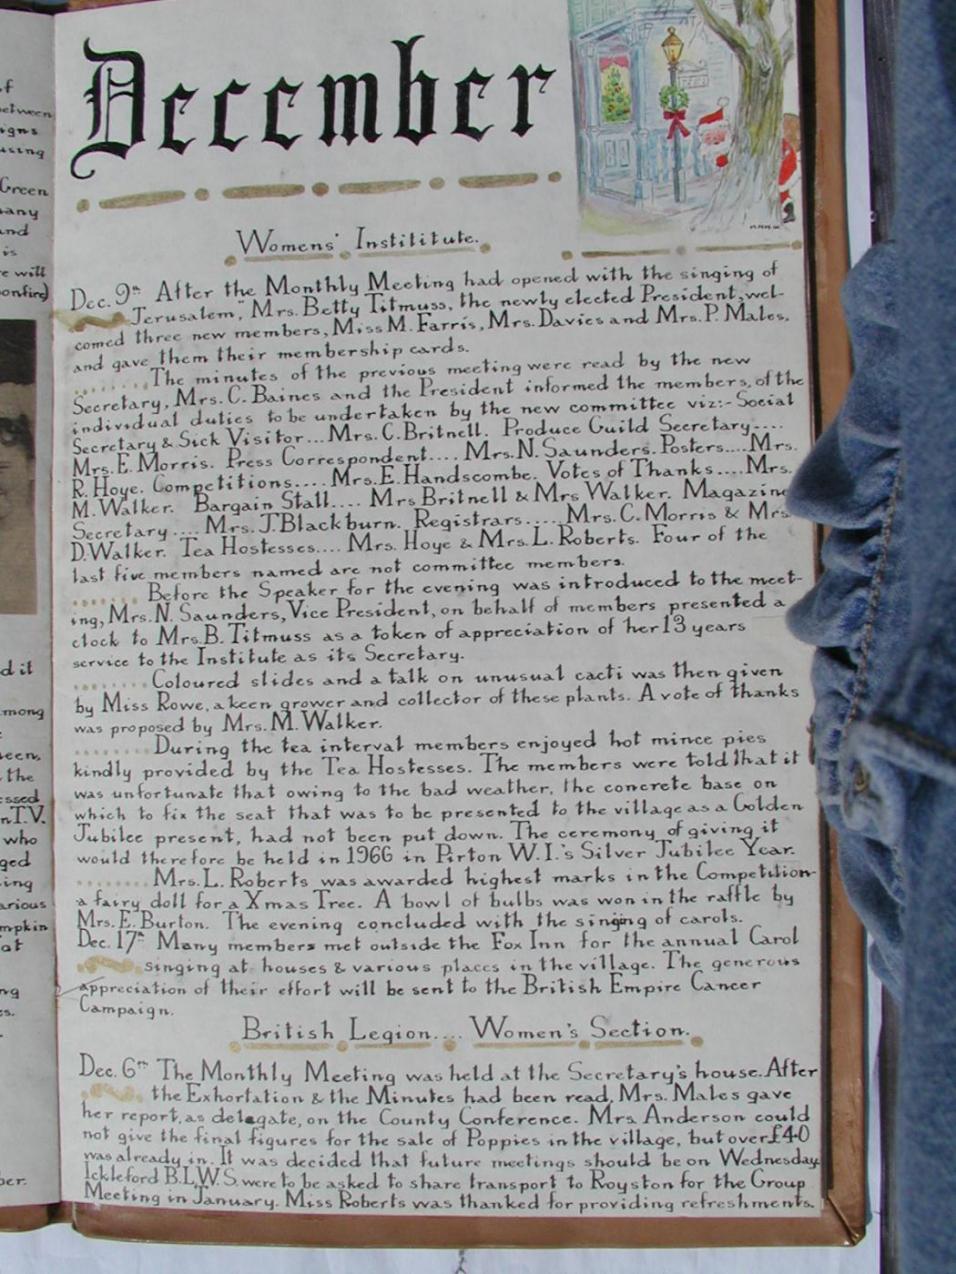 December
Womens' Instititute.
Dec. 9th After the Monthly Meeting had opened with the singing of
"Jerusalem," Mrs. Betty Titmuss, the newly elected President, wel-
comed three new members, Miss M. Farris, Mrs. Davies and Mrs. P. Males,
and gave them their membership cards.
........The minutes of the previous meeting were read by the new
Secretary, Mrs. C. Baines and the President informed the members, of the
individual duties to be undertaken by the new committee viz:- Social
Secretary & Sick Visitor... Mrs. C. Britnell. Produce Guild Secretary....
Mrs. E. Morris. Press Correspondent.... Mrs. N. Saunders. Posters.... Mrs.
R. Hoye. Competitions.... Mrs. E. Handscombe. Votes of Thanks.... Mrs.
M. Walker. Bargain Stall.... Mrs Britnell & Mrs Walker. Magazine
Secretary.... Mrs. J Blackburn. Registrars.... Mrs. C. Morris & Mrs
D. Walker. Tea Hostesses.... Mrs. Hoye & Mrs. L. Roberts. Four of the
last five members named are not committee members.
.......Before the Speaker for the evening was introduced to the meet-
ing, Mrs. N. Saunders, Vice President, on behalf of members presented a
clock to Mrs. B. Titmuss as a token of appreciation of her 13 years
service to the Institute as its Secretary.
........Coloured slides and a talk on unusual cacti was then given
by Miss Rowe, a keen grower and collector of these plants. A vote of thanks
was proposed by Mrs. M. Walker.
........During the tea interval members enjoyed hot mince pies
kindly provided by the Tea Hostesses. The members were told that it
was unfortunate that owing to the bad weather, the concrete base on
which to fix the seat that was to be presented to the village as a Golden
Jubilee present, had not been put down. The ceremony of giving it
would therefore be held in 1966 in Pirton W.I.'s Silver Jubilee Year.
........Mrs. L. Roberts was awarded highest marks in the Competition-
a fairy doll for a Xmas Tree. A bowl of bulbs was won in the raffle by
Mrs. E. Burton. The evening concluded with the singing of carols.
Dec. 17th Many members met outside the Fox Inn for the annual Carol
singing at houses & various places in the village. The generous
appreciation of their effort will be sent to the British Empire Cancer
Campaign.
British Legion.... Women's Section.
Dec. 6th The Monthly Meeting was held at the Secretary's house. After
the Exhortation & the Minutes had been read, Mrs. Males gave
her report, as delegate, on the County Conference. Mrs Anderson could
not give the final figures for the sale of Poppies in the village, but over £40
was already in. It was decided that future meetings should be on Wednesday
Ickleford B.L.W.S. were to be asked to share transport to Royston for the Group
Meeting in January. Miss Roberts was thanked for providing refreshments.